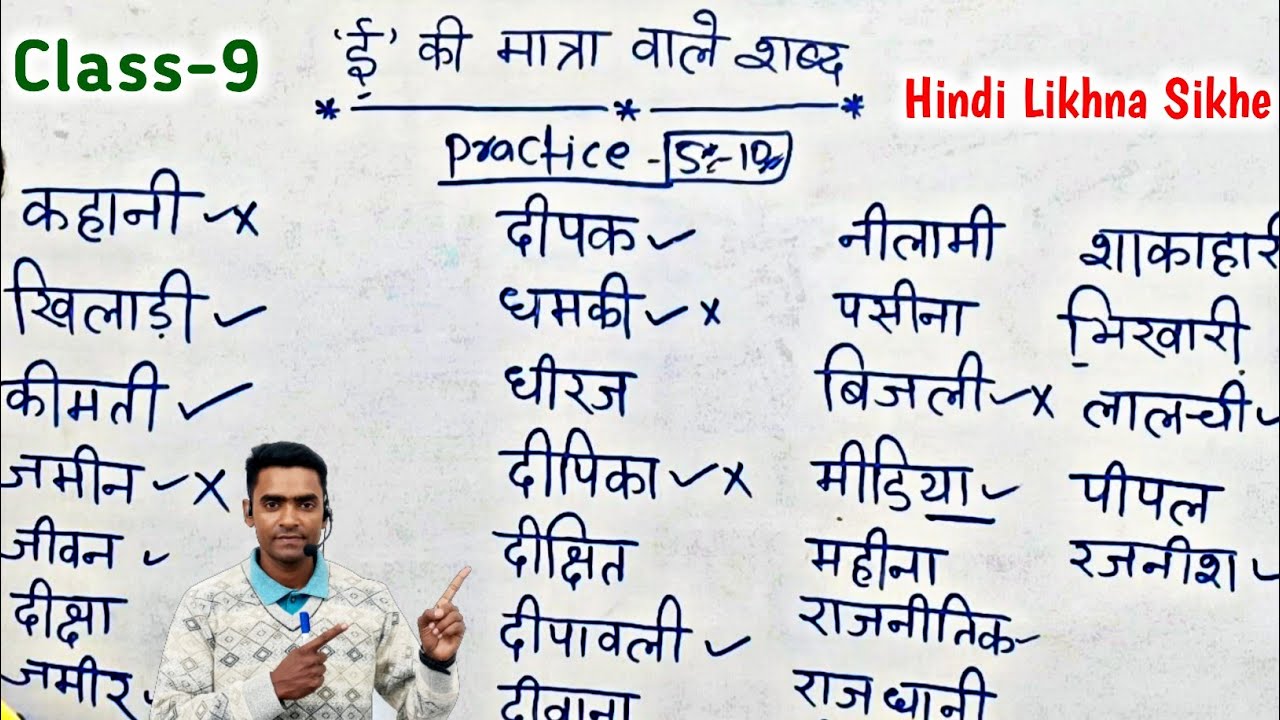 Class-9
'ई' की मात्रा वाले शब्द
Hindi Likhna Sikhe
Practice - 5-10
कहानी
खिलाड़ी
कीमती
जमीन
जीवन
दीक्षा
जमीर
दीपक
धमकी
धीरज
दीपिका
दीक्षित
दीपावली
दीवाना
नीलामी
पसीना
बिजली
मीडिया
महीना
राजनीतिक
राजधानी
शाकाहारी
भिखारी
लालची
पीपल
रजनीश